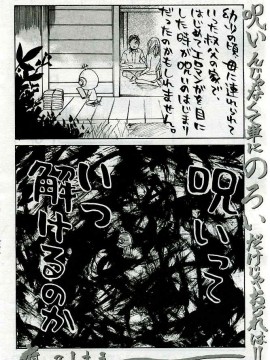 呪いんじゃなくて単に
のろいだけじゃねぇのおれは!!
幼少の頃母に連れられて
いった叔父の家で、
はじめてエロマンガを目に
した時が呪いのはじまり
だったのかもしれません。
呪いって
いつ
解けるのか